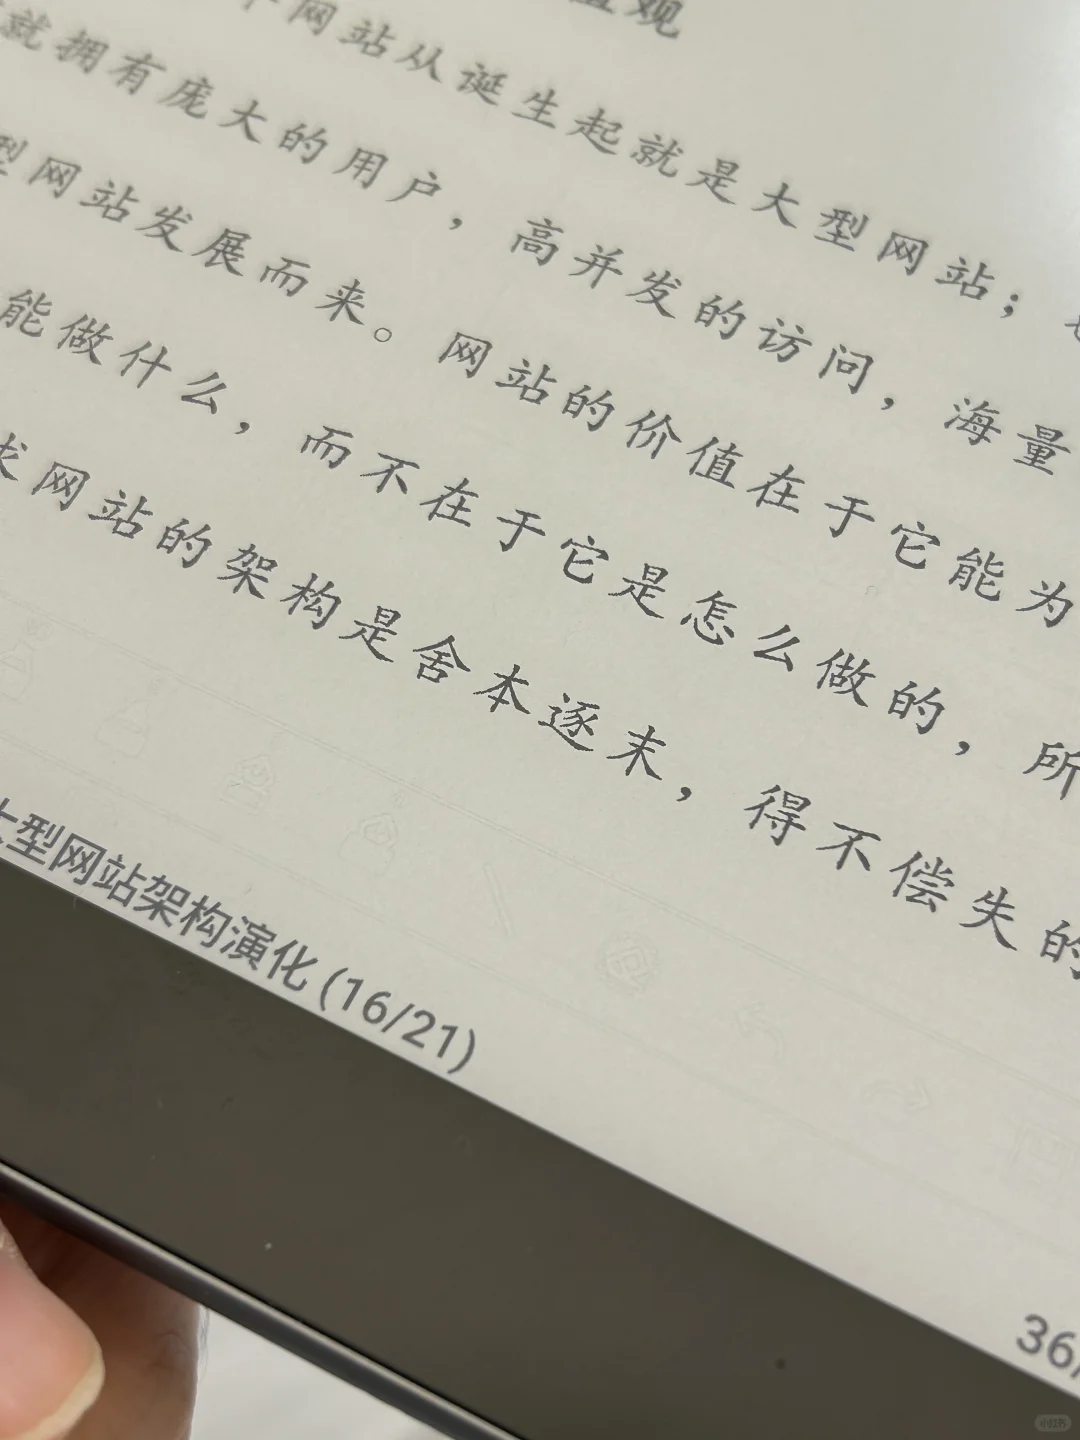 值观
个网站从诞生起就是大型网站；
就拥有庞大的用户，高并发的访问，海量
型网站发展而来。网站的价值在于它能为
能做什么，而不在于它是怎么做的，所
求网站的架构是舍本逐末，得不偿失的
大型网站架构演化 (16/21)
36/
小红书